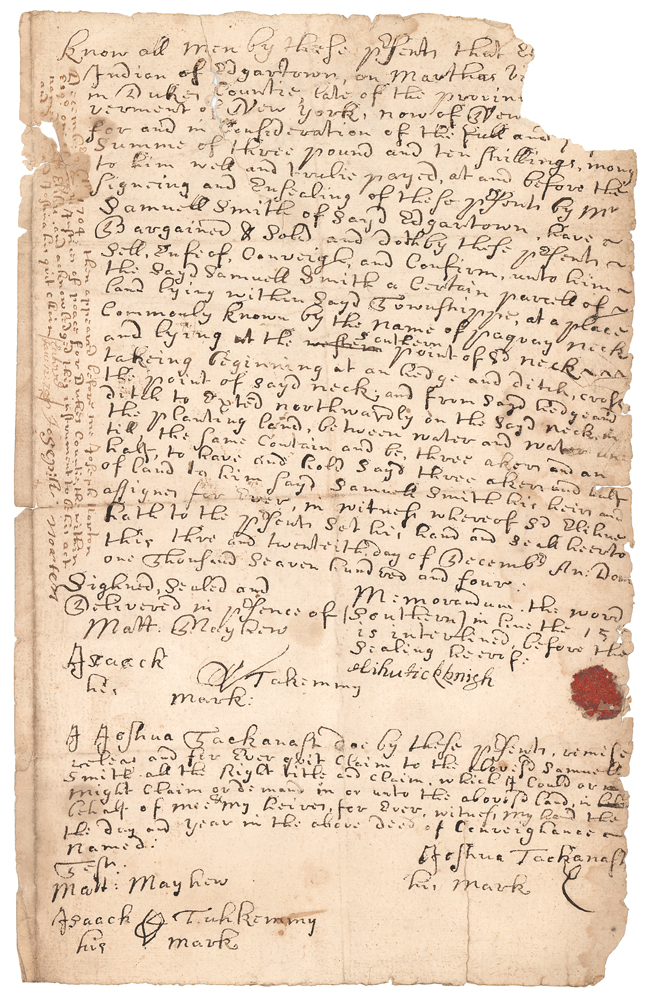 Know all men by these psents that
Indian of Edgartown, on Marthas
in Dukes Countie, late of the
verment of New York, now of New
for and in Consideration of the full and
Summe of three pound and ten shillings, mony
to him well and trulie payed, at and before the
Signeing and Ensealing of these psents by Mr
Samuell Smith of Sayd Edgartown, have
Bargained & Sold, and doth by these psents
Sell, Enfeof, Conveigh, and Confirm, unto him
the Sayd Samuell Smith a Certain parcell of
land lying within Sayd Townshippe, at a place
Commonly known by the name of paquay neck
and lying at the Southern point of sd neck
takeing beginning at an hedge and ditch, cross
the point of Sayd neck, and from Sayd hedge and
ditch to Extend northwardly on the Sayd neck
the planting land, between water and water
till the Same Contain and be, three akers and an
half, to have and hold Sayd three akers and half
of land to him Sayd Samuell Smith his heirs and
assignes for Ever, in witness whereof Sd Elihue
hath to the psents Set his hand and Seale heerto
this thre and twenteith day of Decembr An: Dom
one Thousand Seaven hundred and four.
Sighned, Sealed and
Delivered in psence of
Matt: Mayhew
Isaack Takemmy
his mark:
Memorandum. the word
(Southern) in line the 15
is interlined, before the
Sealing heerof.
elihu tickhnigh
I Joshua Tackanash doe by these psents, remise
releas and for Ever quit Claim to the abovesd Samuell
Smith all the Right title and Claim, which I Could or
might Claim or demand in or unto the abovsd land, in
behalf of mee & my heires, for Ever, witness my hand the
the day and year in the above deed of Conveighance
named:
Test:
Matt: Mayhew
Isaack Tuhkemmy
his mark
Joshua Tackanash
his mark
1704 then appeared before me Joseph Norton
of peace for Dukes Countie the within
and acknowledged this instrument to be his act
Joseph Norton